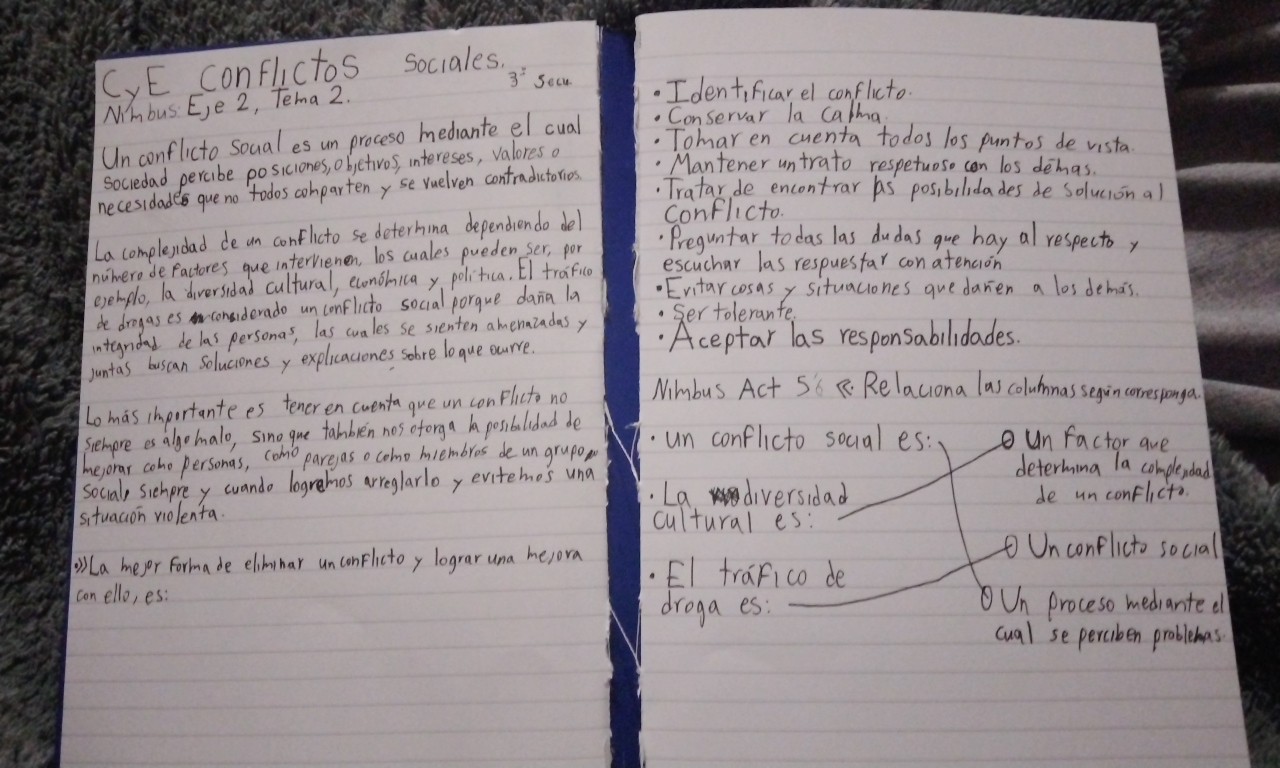 CyE Conflictos Sociales.
3° Secu.
Nimbus: Eje 2, Tema 2.
Un conflicto social es un proceso mediante el cual
sociedad percibe posiciones, objetivos, intereses, valores o
necesidades que no todos comparten y se vuelven contradictorios.
La complejidad de un conflicto se determina dependiendo del
número de factores que intervienen, los cuales pueden ser, por
ejemplo, la diversidad cultural, económica y política. El tráfico
de drogas es considerado un conflicto social porque daña la
integridad de las personas, las cuales se sienten amenazadas y
juntas buscan soluciones y explicaciones sobre lo que ocurre.
Lo más importante es tener en cuenta que un conflicto no
siempre es algo malo, sino que también nos otorga la posibilidad de
mejorar como personas, como parejas o como miembros de un grupo
social, siempre y cuando logremos arreglarlo y evitemos una
situación violenta.
La mejor forma de eliminar un conflicto y lograr una mejora
con ello, es:
• Identificar el conflicto.
• Conservar la calma.
• Tomar en cuenta todos los puntos de vista.
• Mantener un trato respetuoso con los demás.
• Tratar de encontrar las posibilidades de solución al
conflicto.
• Preguntar todas las dudas que hay al respecto y
escuchar las respuestar con atención
• Evitar cosas y situaciones que dañen a los demás.
• Ser tolerante.
• Aceptar las responsabilidades.
Nimbus Act 56 Relaciona las columnas según corresponga.
• un conflicto social es:
• La diversidad
cultural es:
• El tráfico de
droga es:
Un factor que
determina la complejidad
de un conflicto.
Un conflicto social
Un proceso mediante el
cual se perciben problemas.